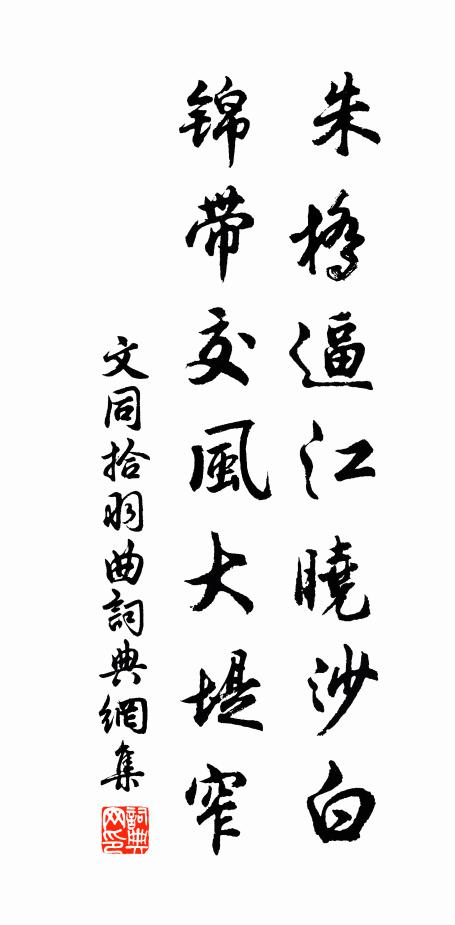 朱橋逼江曉沙白
錦帶交風大堤窄
文同拾羽曲詞典網集
詞典網印